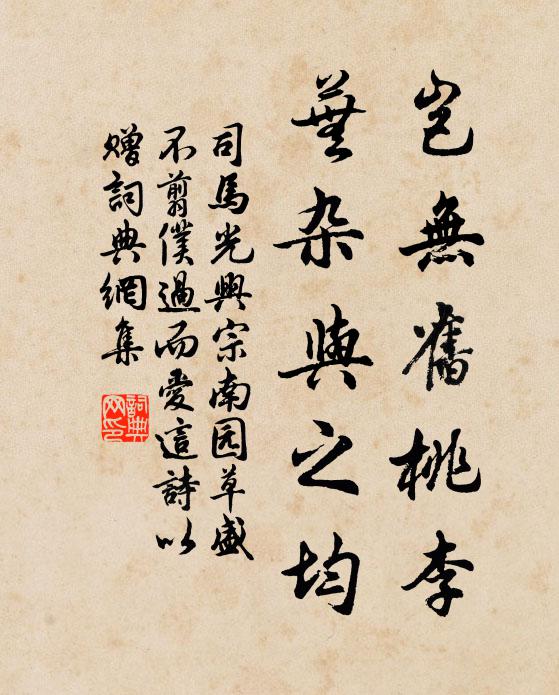 豈無舊桃李
蕪雜與之均
司馬光興宗南园草盛
不翦僕過而愛這詩以
贈詞典網集
詞典
网印